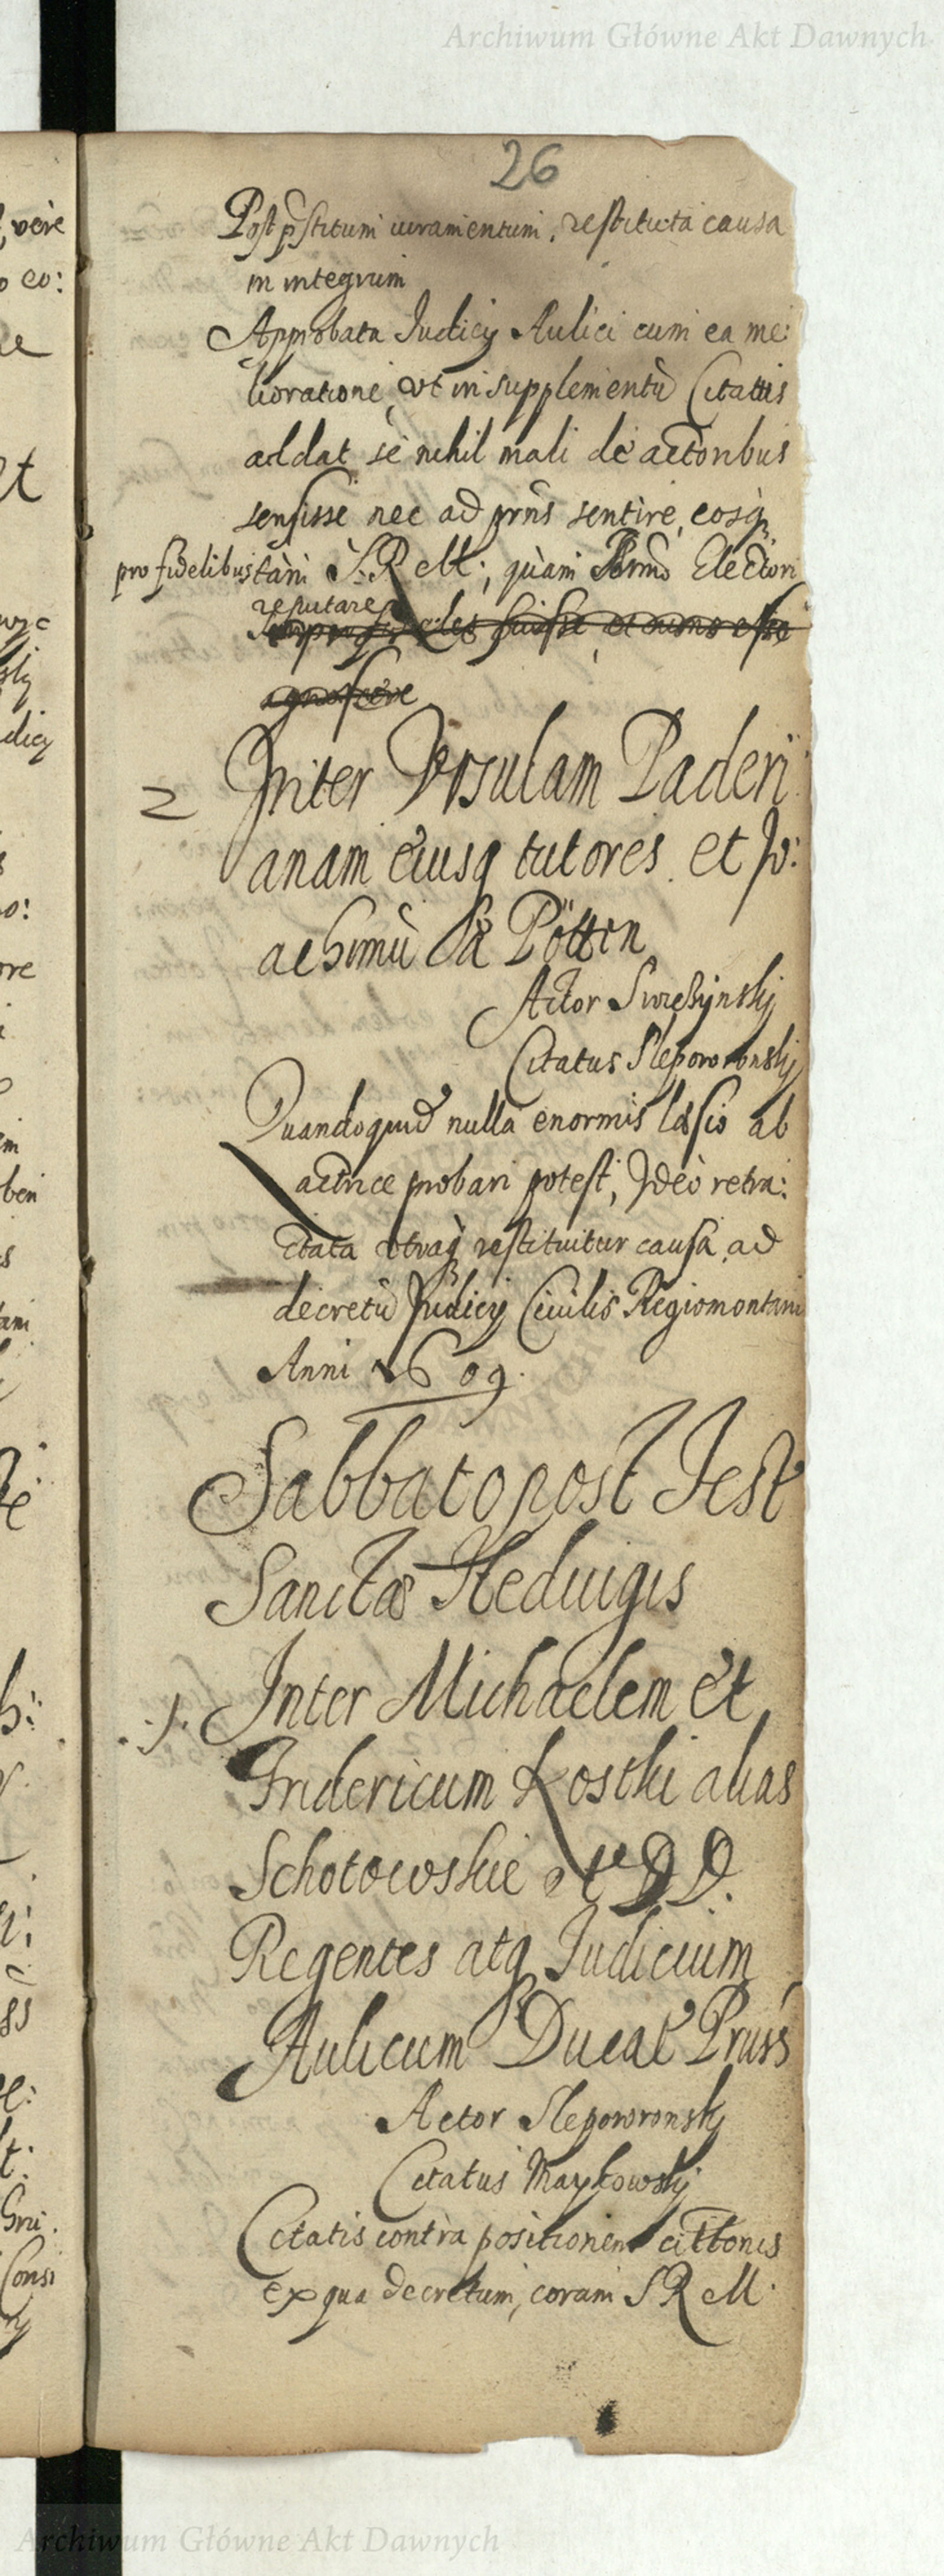 Archiwum Główne Akt Dawnych
26
Post pr̃stitum iuramentum, restituta causa
in integrum
Approbata Judicij Aulici cum ea me:
lioratione, vt in supplementũ Citatus
addat se nihil mali de actoribus
sensisse nec ad prñs sentire, eosq
pro fidelibus tam S. R. M:, quàm Sermõ Electori
reputare
fideles fuisse et nunc esse
agnoscere
2 Inter Vrsulam Paderi
anam eiusq tutores et Jo:
achimũ à Pötten
Actor Swieżynskij
Citatus Sleporonskij
Quandoquid nulla enormis læsio ab
actrice probari potest, Ideò retra:
ctata vtraq restituitur causa ad
decretũ Judicij Ciuilis Regiomontani
Anni 1609.
Sabbato post Fest
Sanctæ Heduigis
.1. Inter Michaelem et
Fridericum Kostki alias
Schotowskie et DD.
Regentes atq Judicium
Aulicum Ducat Pruss
Actor Sleporonskj
Citatus Maykowskij
Citatis contra positionem cittonis
ex qua decretum, coram S R M.
Archiwum Główne Akt Dawnych